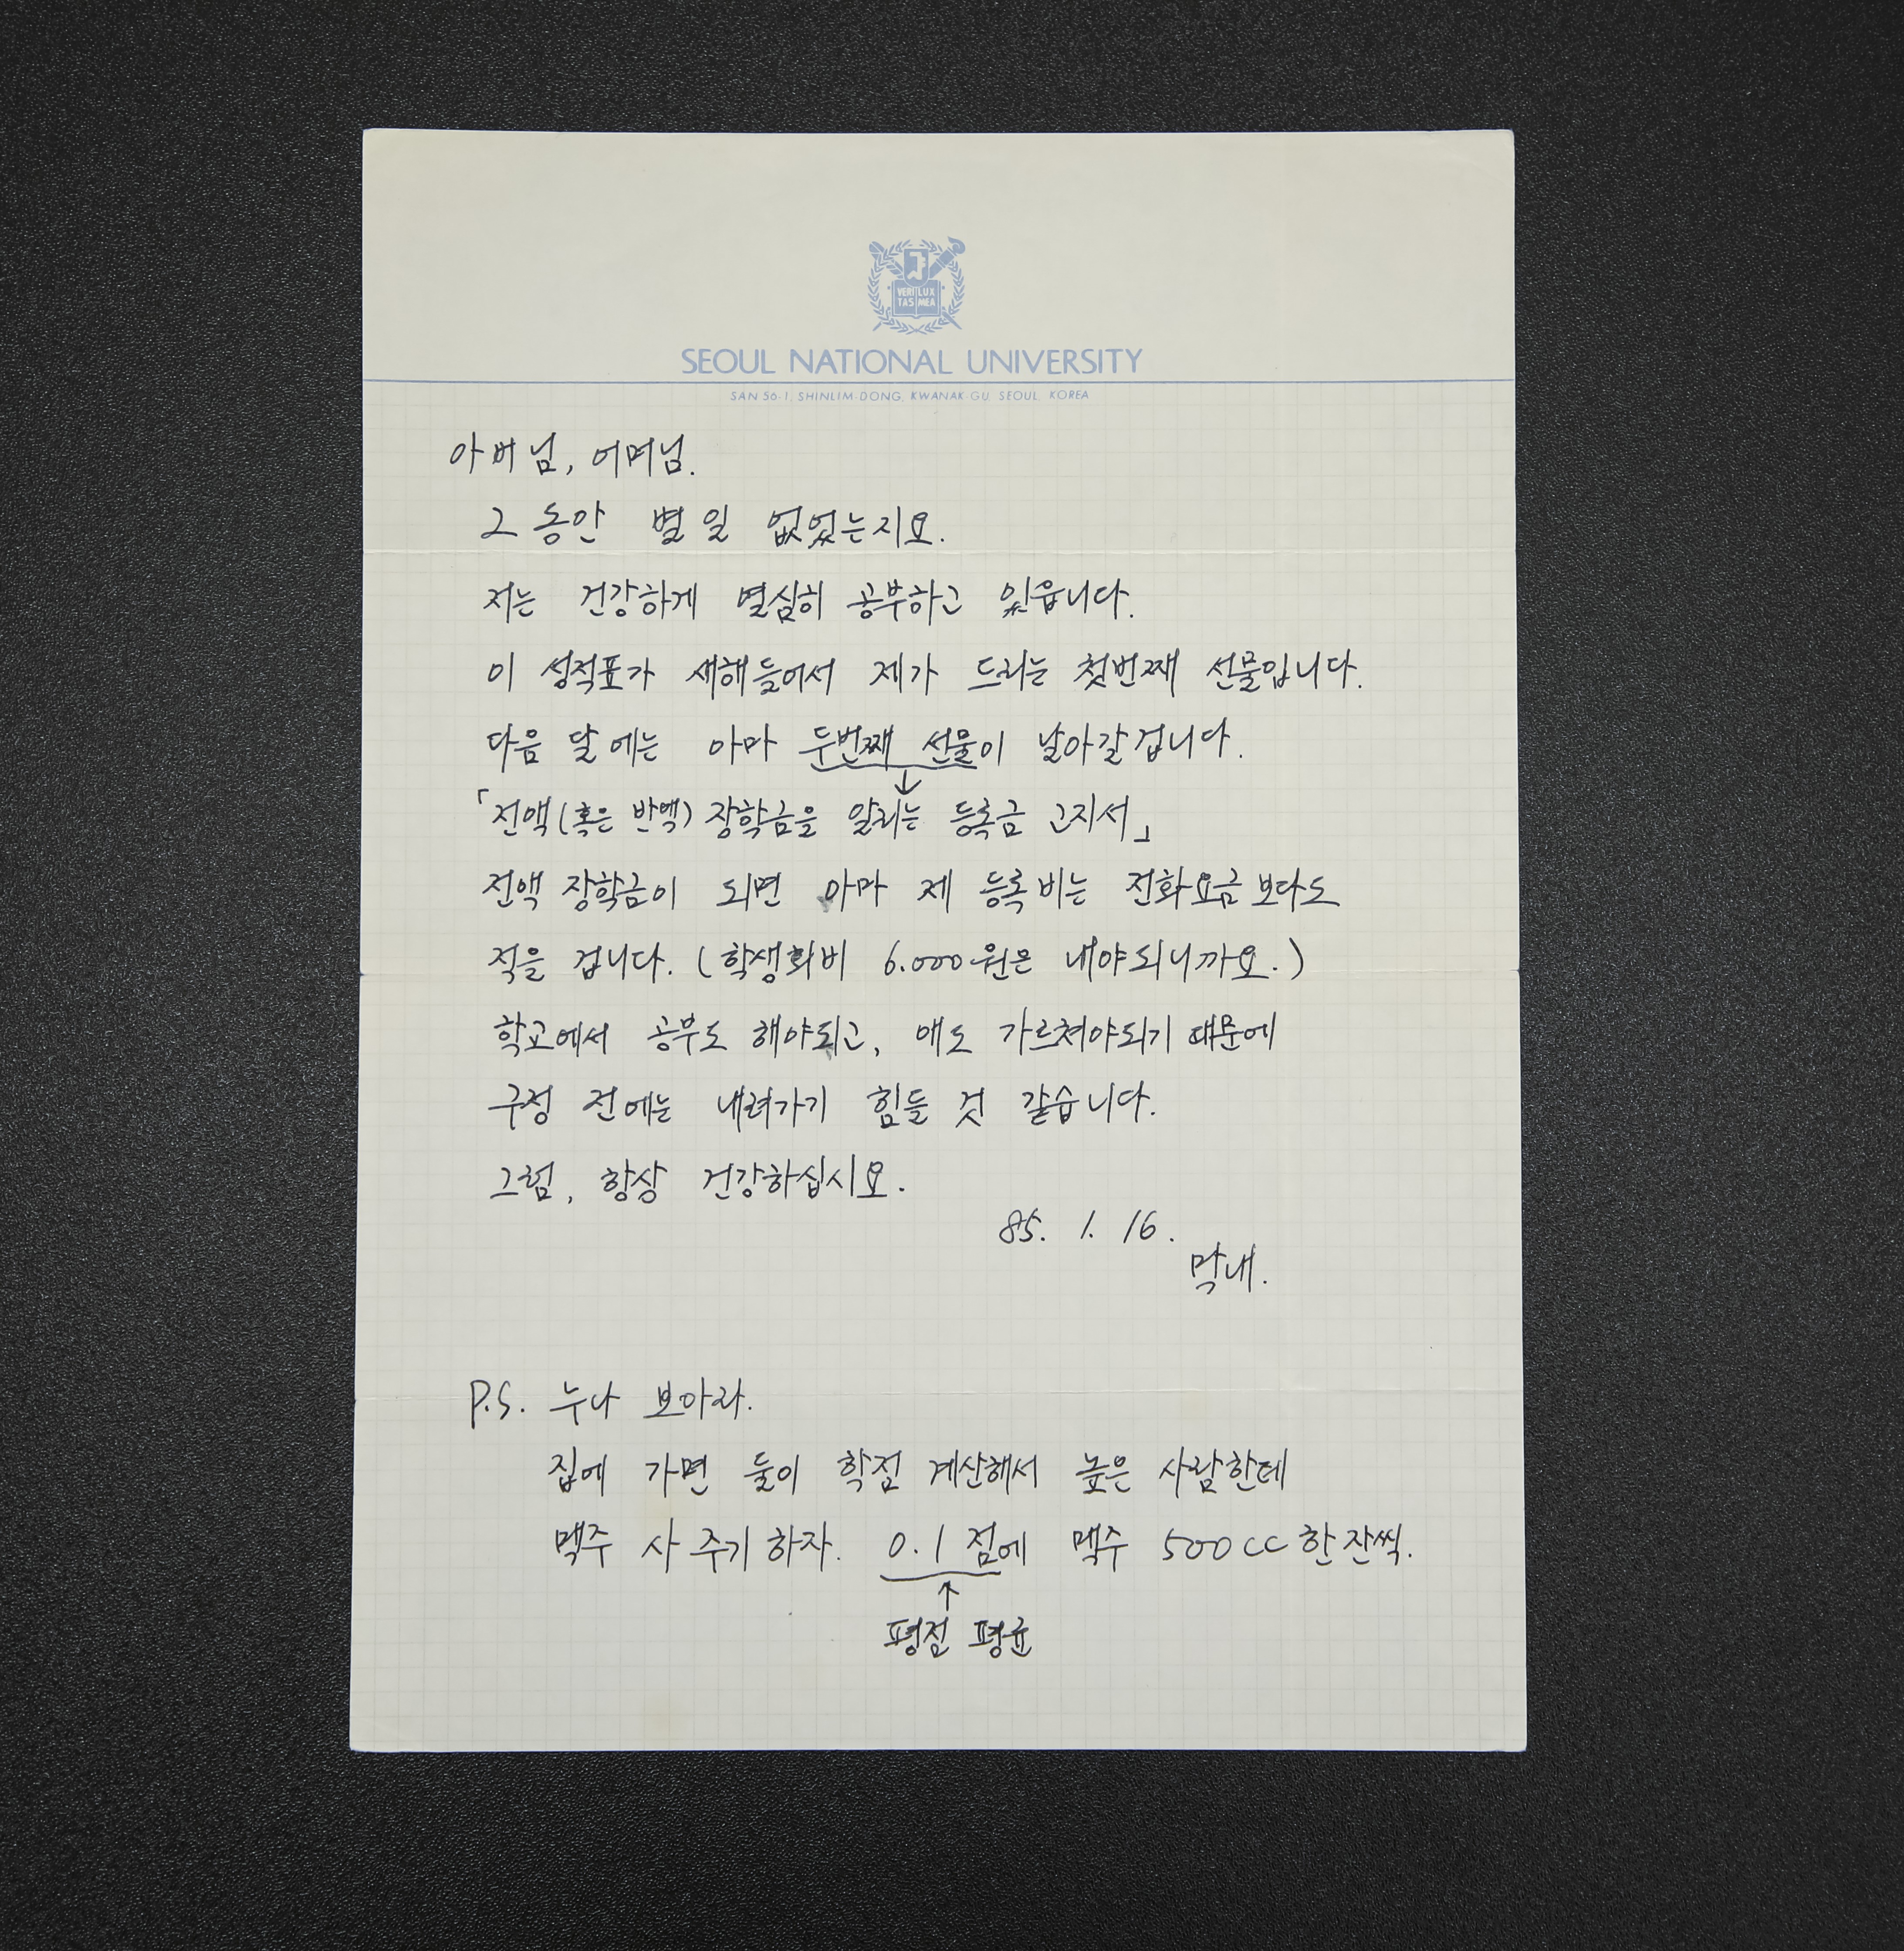 VERI LUX
TAS MEA
SEOUL NATIONAL UNIVERSITY
SAN 56-1, SHINLIM-DONG, KWANAK-GU, SEOUL, KOREA
아버님, 어머님.
그동안 별일 없었는지요.
저는 건강하게 열심히 공부하고 있읍니다.
이 성적표가 새해들어서 제가 드리는 첫번째 선물입니다.
다음 달에는 아마 두번째 선물이 날아갈겁니다.
↓
「전액(혹은 반액) 장학금을 알리는 등록금 고지서」
전액 장학금이 되면 아마 제 등록비는 전화요금보다도
적을 겁니다. (학생회비 6.000원은 내야되니까요.)
학교에서 공부도 해야되고, 애도 가르쳐야되기 때문에
구정 전에는 내려가기 힘들 것 같습니다.
그럼, 항상 건강하십시요.
85. 1. 16.
막내.
P.S. 누나 보아라.
집에 가면 둘이 학점 계산해서 높은 사람한테
맥주 사 주기 하자. 0.1 점에 맥주 500cc 한잔씩.
↑
평점 평균